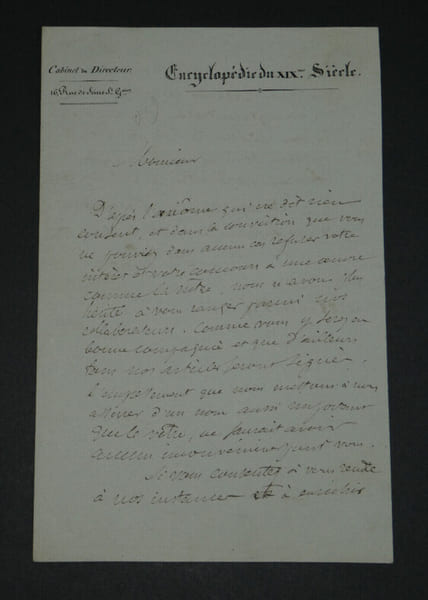 Cabinet du Directeur.
Encyclopédie du XIX.me Siècle.
16, Rue de Seine St. Gmain
Monsieur
D'après l'axiôme qui ne dit rien
consent, et dans la conviction que vous
ne pouviez dans aucun cas refuser votre
intérêt et votre concours à une œuvre
comme la nôtre, nous n'avons plus
hésité à vous ranger parmi nos
collaborateurs. Comme vous y serez en
bonne compagnie et que d'ailleurs
tous nos articles seront signés,
l'empressement que nous mettons à nous
d'un nom aussi important
que le vôtre, ne saurait avoir
aucun inconvénient pour vous.
Si vous consentez à vous rendre
à nos instances et à enrichir